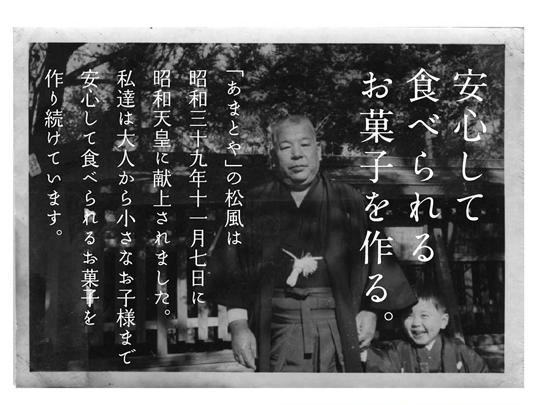 安心して
食べられる
お菓子を作る。
「あまとや」の松風は
昭和三十九年十一月七日に
昭和天皇に献上されました。
私達は大人から小さなお子様まで
安心して食べられるお菓子を
作り続けています。